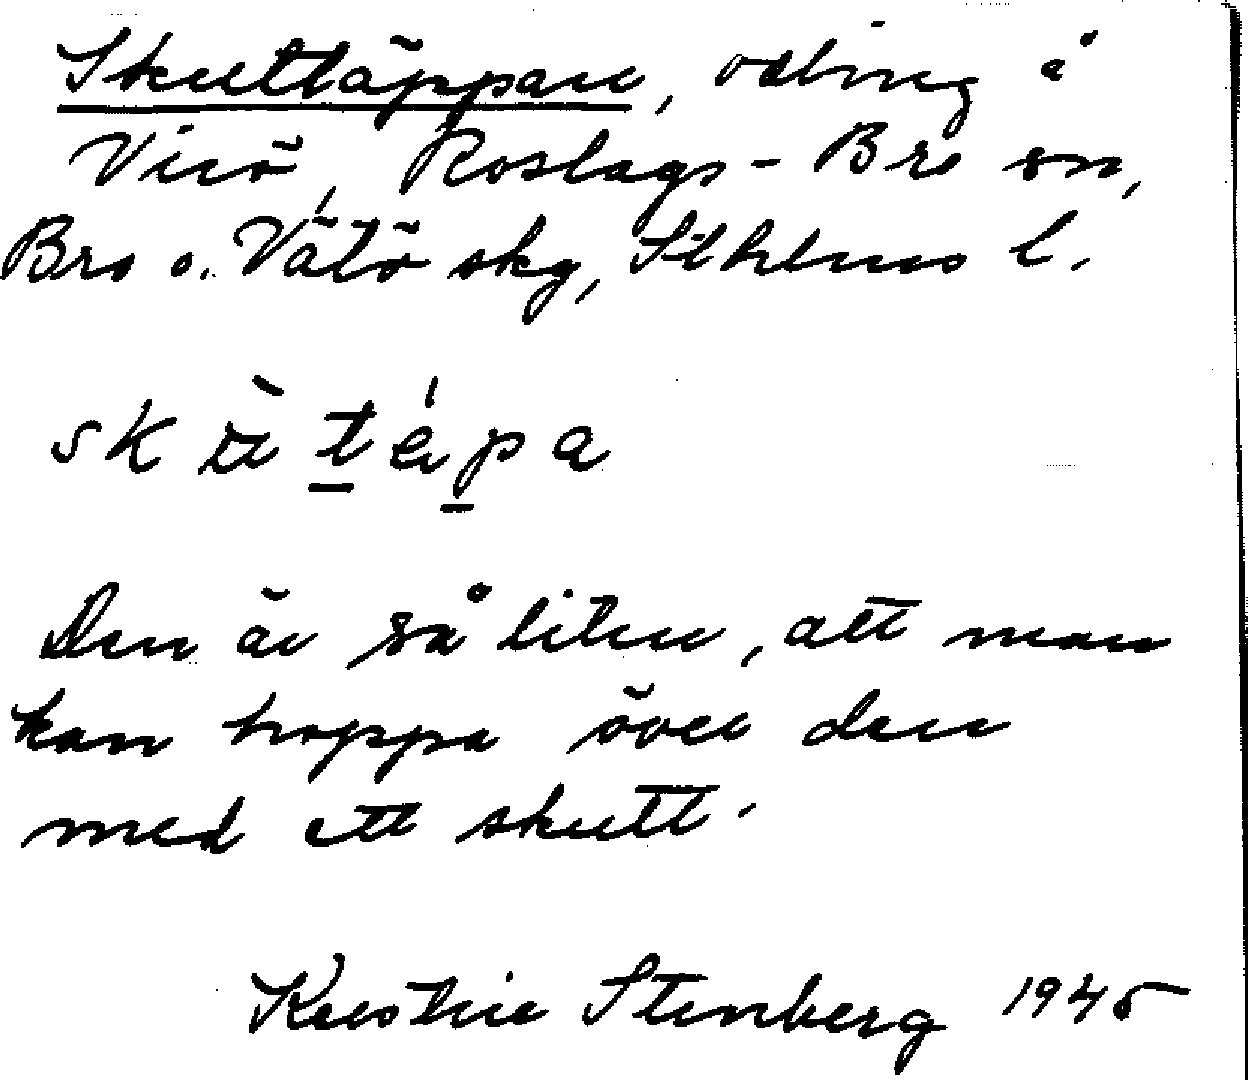 Skuttäppan, odling å
Virö, Roslags-Bro sn,
Bro o. Vätö skg, Sthlms l.
Den är så liten, att man
kan hoppa över den
med ett skutt.
Kerstin Stenberg 1945